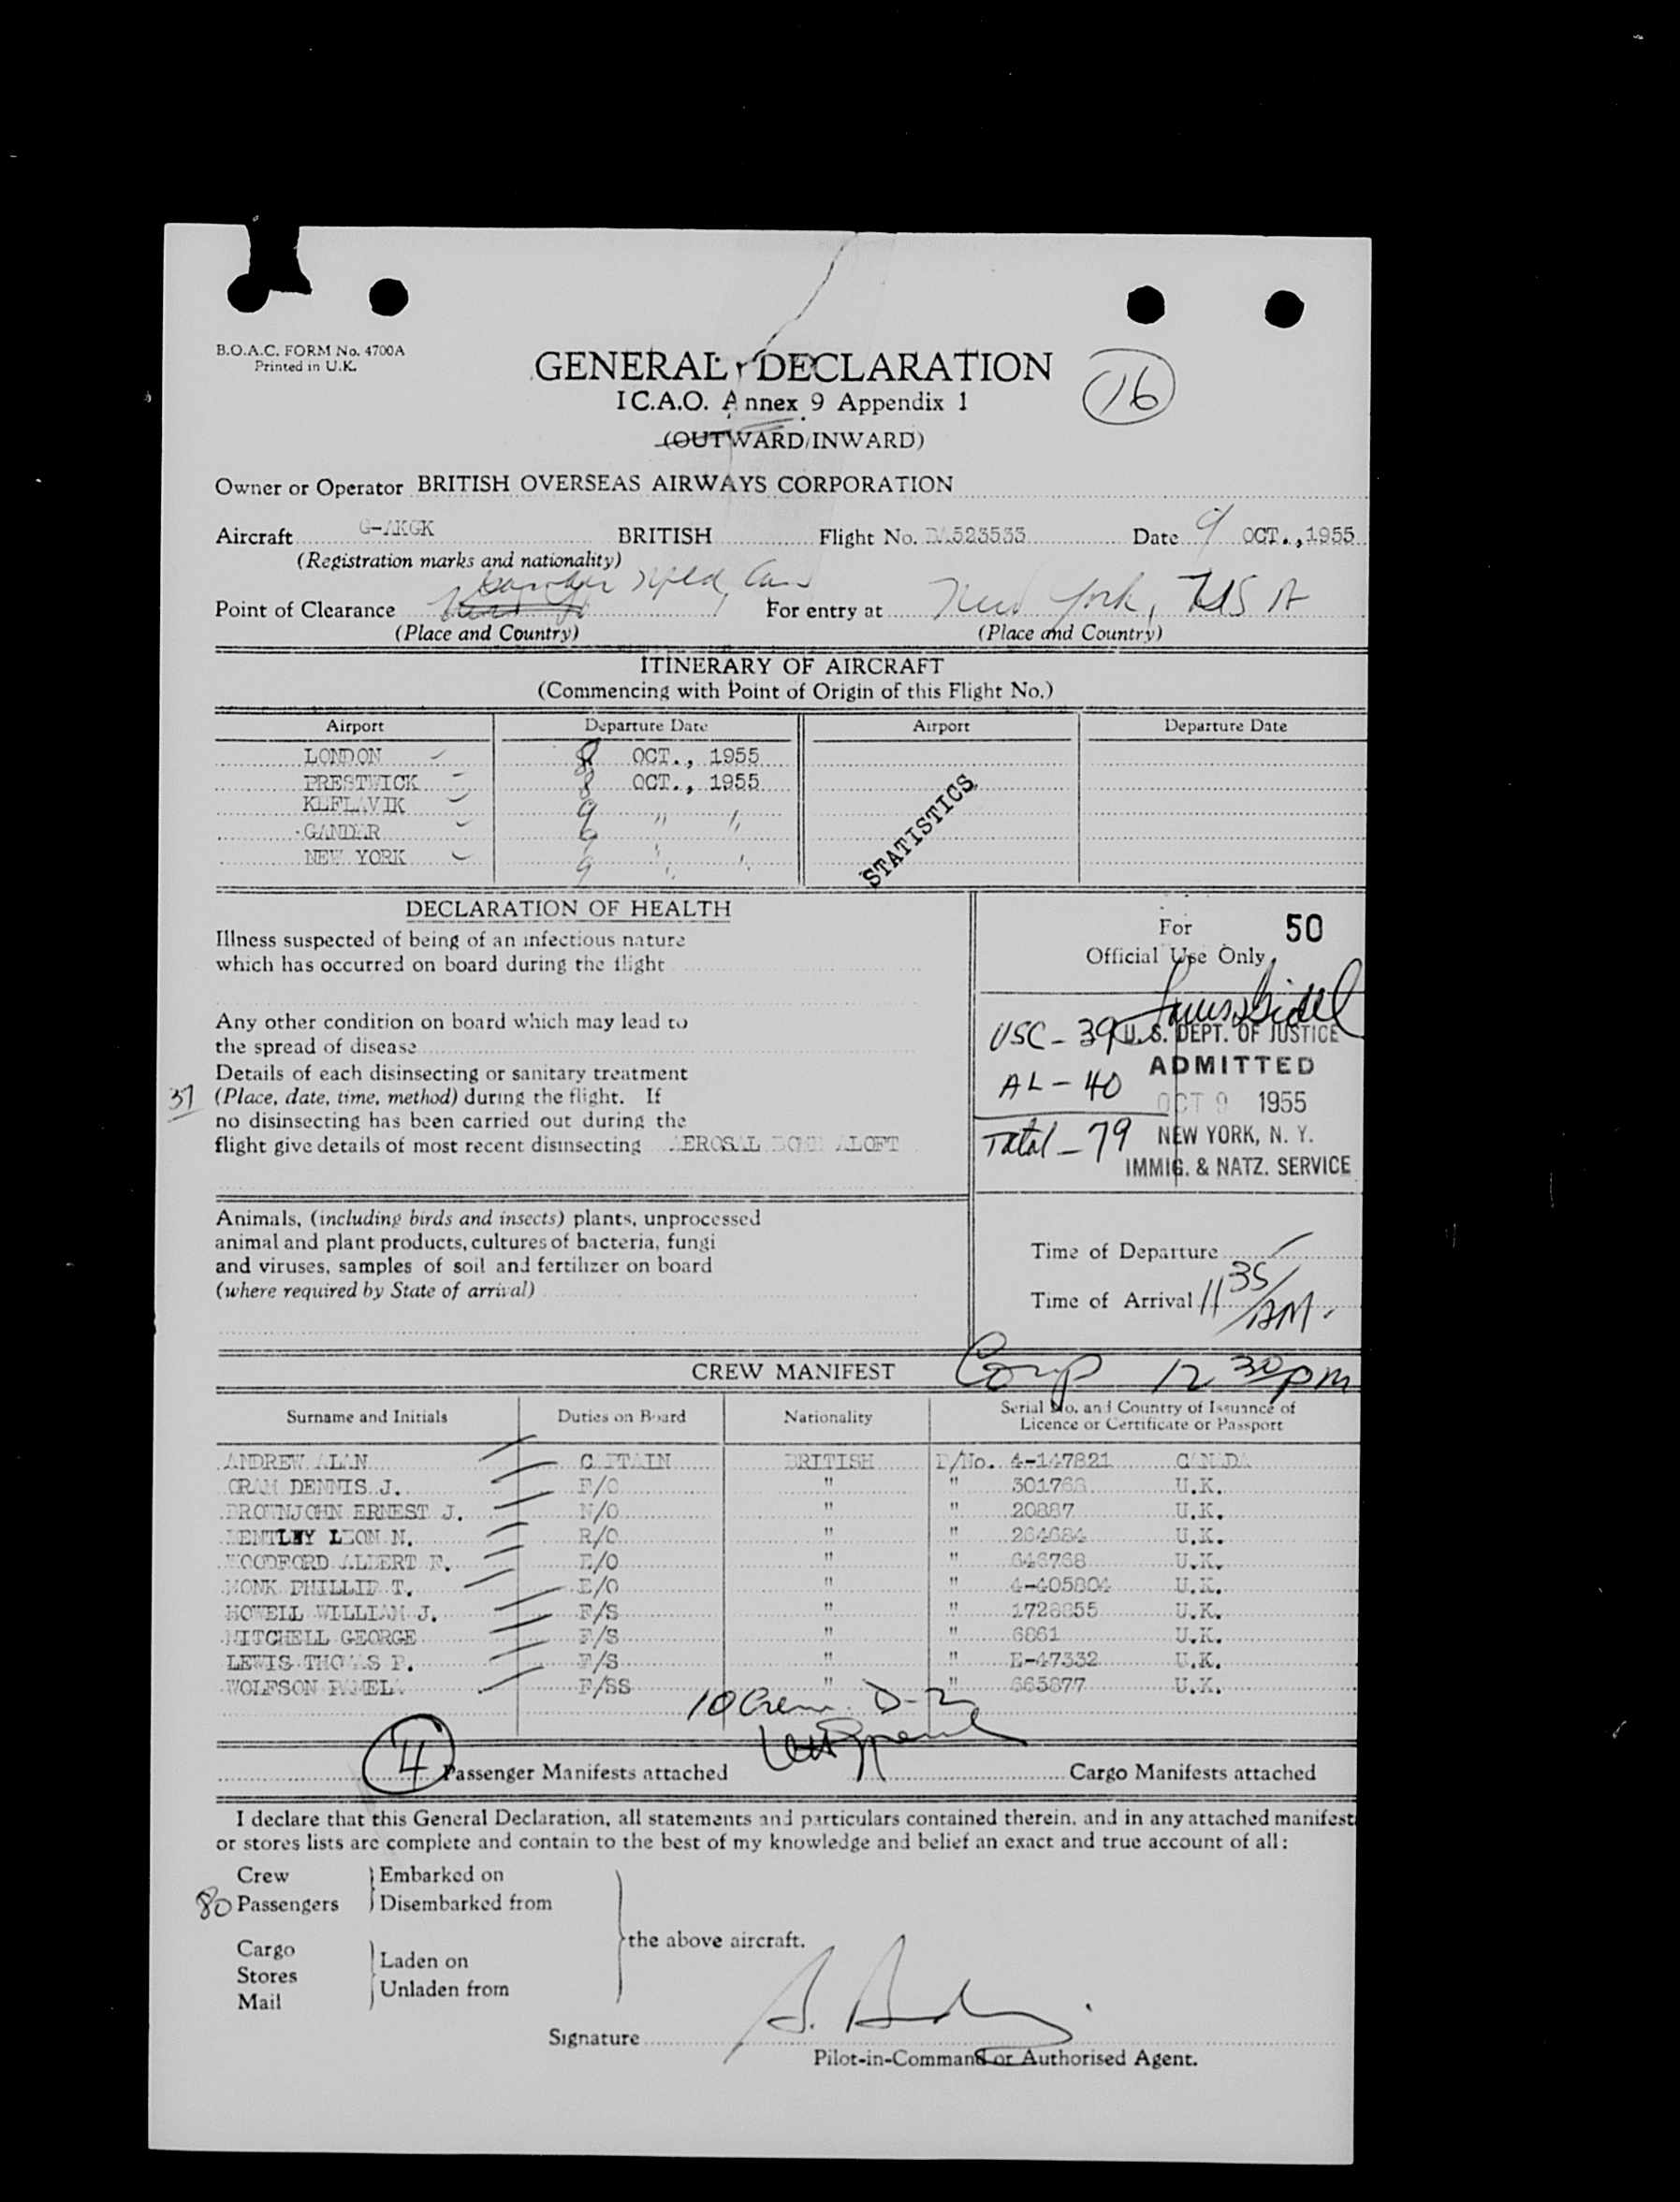 B.O.A.C. FORM No. 4700A
Printed in U.K.
GENERAL DECLARATION
I C.A.O. Annex 9 Appendix 1
(OUTWARD/INWARD)
16
Owner or Operator BRITISH OVERSEAS AIRWAYS CORPORATION
Aircraft G-AKGK BRITISH Flight No. BA523535 Date 9 OCT., 1955
(Registration marks and nationality)
Point of Clearance Gander Nfld, Can For entry at New York, USA
(Place and Country) (Place and Country)
ITINERARY OF AIRCRAFT
(Commencing with Point of Origin of this Flight No.)
Airport Departure Date Airport Departure Date
LONDON 8 OCT., 1955
PRESTWICK 8 OCT., 1955
KEFLAVIK 9 " "
GANDER 9 " "
NEW YORK 9 " "
STATISTICS
DECLARATION OF HEALTH
Illness suspected of being of an infectious nature
which has occurred on board during the flight
Any other condition on board which may lead to
the spread of disease
Details of each disinsecting or sanitary treatment
(Place, date, time, method) during the flight. If
no disinsecting has been carried out during the
flight give details of most recent disinsecting AEROSAL BOMB ALOFT
37
For 50
Official Use Only
USC - 39 U.S. DEPT. OF JUSTICE
AL - 40 ADMITTED
OCT 9 1955
Total - 79 NEW YORK, N. Y.
IMMIG. & NATZ. SERVICE
Animals, (including birds and insects) plants, unprocessed
animal and plant products, cultures of bacteria, fungi
and viruses, samples of soil and fertilizer on board
(where required by State of arrival)
Time of Departure
Time of Arrival 11 35/AM.
CREW MANIFEST Comp 12 30 pm
Surname and Initials Duties on Board Nationality Serial No. and Country of Issuance of
Licence or Certificate or Passport
ANDREW ALAN CAPTAIN BRITISH P/No. 4-147821 CANADA
ORAM DENNIS J. F/O " " 301768 U.K.
BROWNJOHN ERNEST J. N/O " " 20887 U.K.
BENTLEY LEON N. R/O " " 264684 U.K.
WOODFORD ALBERT F. E/O " " 646768 U.K.
MONK PHILLIP T. E/O " " 4-405804 U.K.
HOWELL WILLIAM J. F/S " " 1728855 U.K.
MITCHELL GEORGE F/S " " 6861 U.K.
LEWIS THOMAS P. F/S " " E-47332 U.K.
WOLFSON PAMELA F/SS " " 665877 U.K.
10 Crew D-2
4 Passenger Manifests attached Cargo Manifests attached
I declare that this General Declaration, all statements and particulars contained therein, and in any attached manifest
or stores lists are complete and contain to the best of my knowledge and belief an exact and true account of all:
Crew Embarked on
80 Passengers Disembarked from
the above aircraft.
Cargo Laden on
Stores
Unladen from
Mail
Signature
Pilot-in-Command or Authorised Agent.